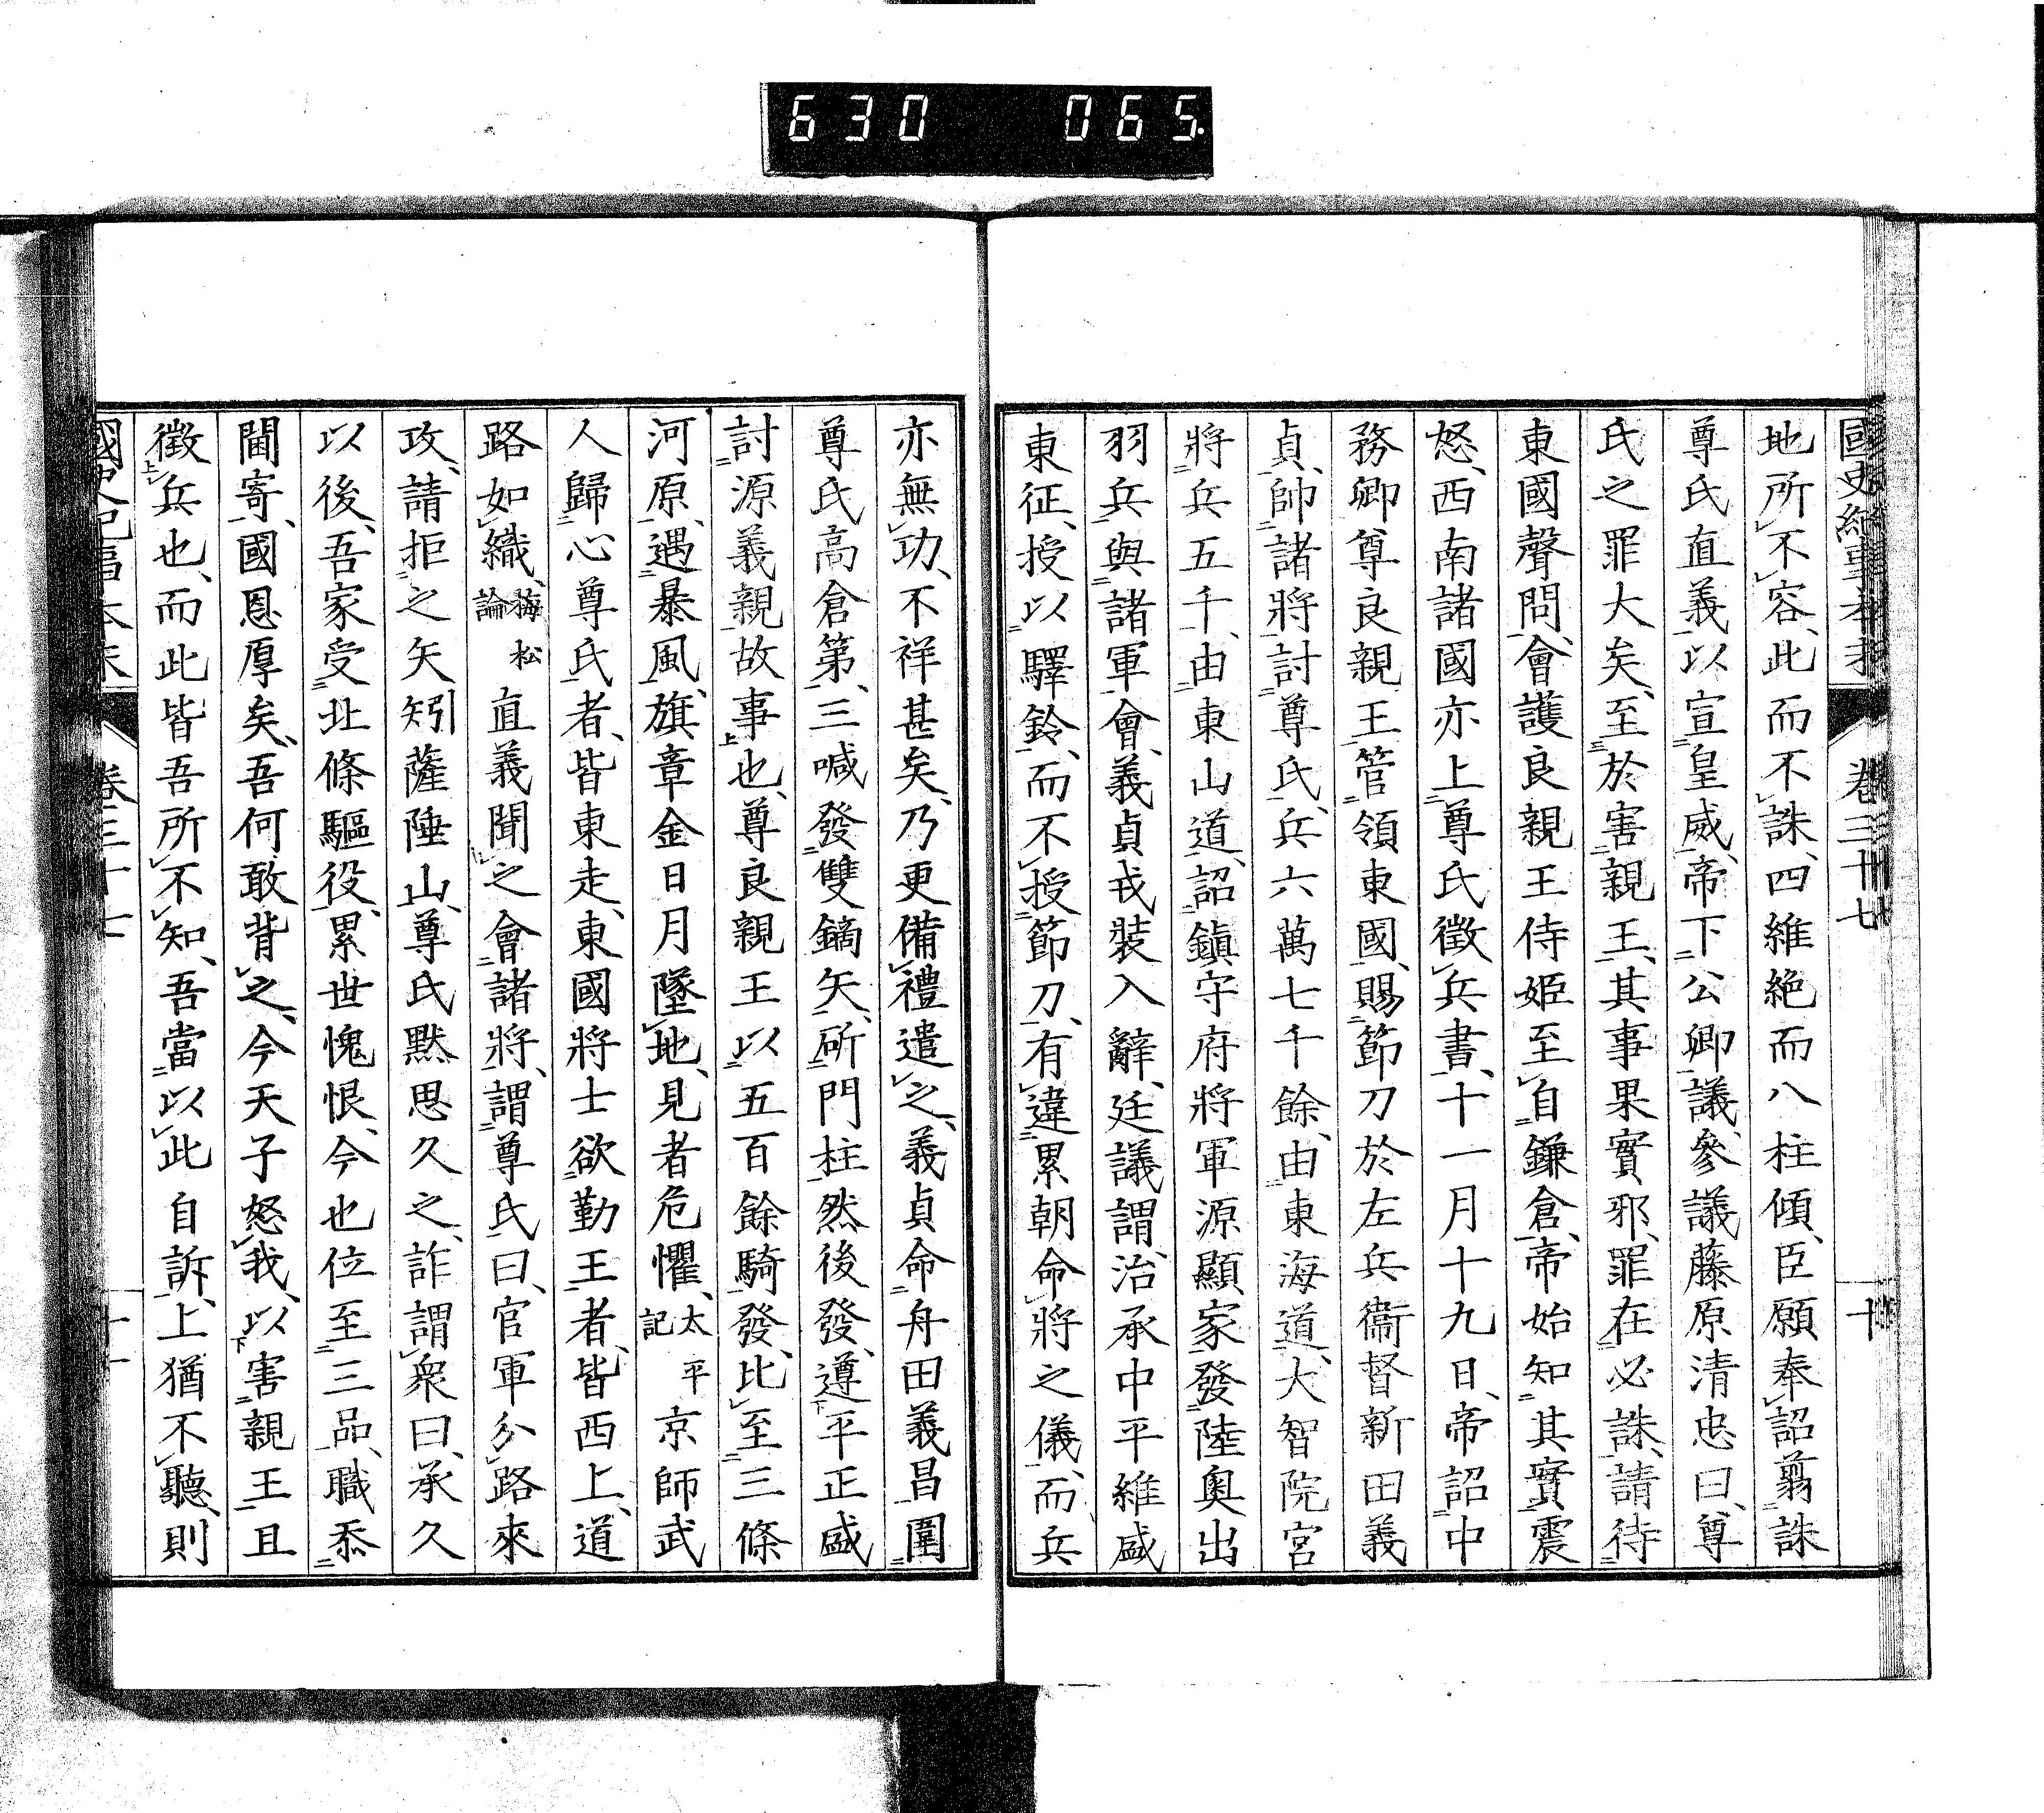 630 065.
國史紀事本末 卷三十七 十
地所不容、此而不誅、四維絶而八柱傾、臣願奉詔翦誅
尊氏直義、以宣皇威、帝下公卿議、參議藤原清忠曰、尊
氏之罪大矣、至於害親王、其事果實邪、罪在必誅、請待
東國聲問、會護良親王侍姬至自鎌倉、帝始知其實震
怒、西南諸國亦上尊氏徵兵書、十一月十九日、帝詔中
務卿尊良親王管領東國、賜節刀於左兵衞督新田義
貞、帥諸將討尊氏、兵六萬七千餘、由東海道、大智院宮
將兵五千、由東山道、詔鎭守府將軍源顯家發陸奧出
羽兵、與諸軍會、義貞戎裝入辭、廷議謂、治承中平維盛
東征、授以驛鈴、而不授節刀、有違累朝命將之儀、而兵
亦無功、不祥甚矣、乃更備禮遣之、義貞命舟田義昌圍
尊氏高倉第、三喊發雙鏑矢、斫門柱、然後發、遵平正盛
討源義親故事也、尊良親王以五百餘騎發、比至三條
河原、遇暴風、旗章金日月墜地、見者危懼、太平記 京師武
人歸心尊氏者、皆東走、東國將士欲勤王者、皆西上、道
路如織、梅松論 直義聞之、會諸將、謂尊氏曰、官軍分路來
攻、請拒之矢矧薩陲山、尊氏默思久之、詐謂衆曰、承久
以後、吾家受北條驅役、累世愧恨、今也位至三品、職忝
閫寄、國恩厚矣、吾何敢背之、今天子怒我、以害親王且
徵兵也、而此皆吾所不知、吾當以此自訴、上猶不聽、則
國史紀事本末 卷三十七 十一